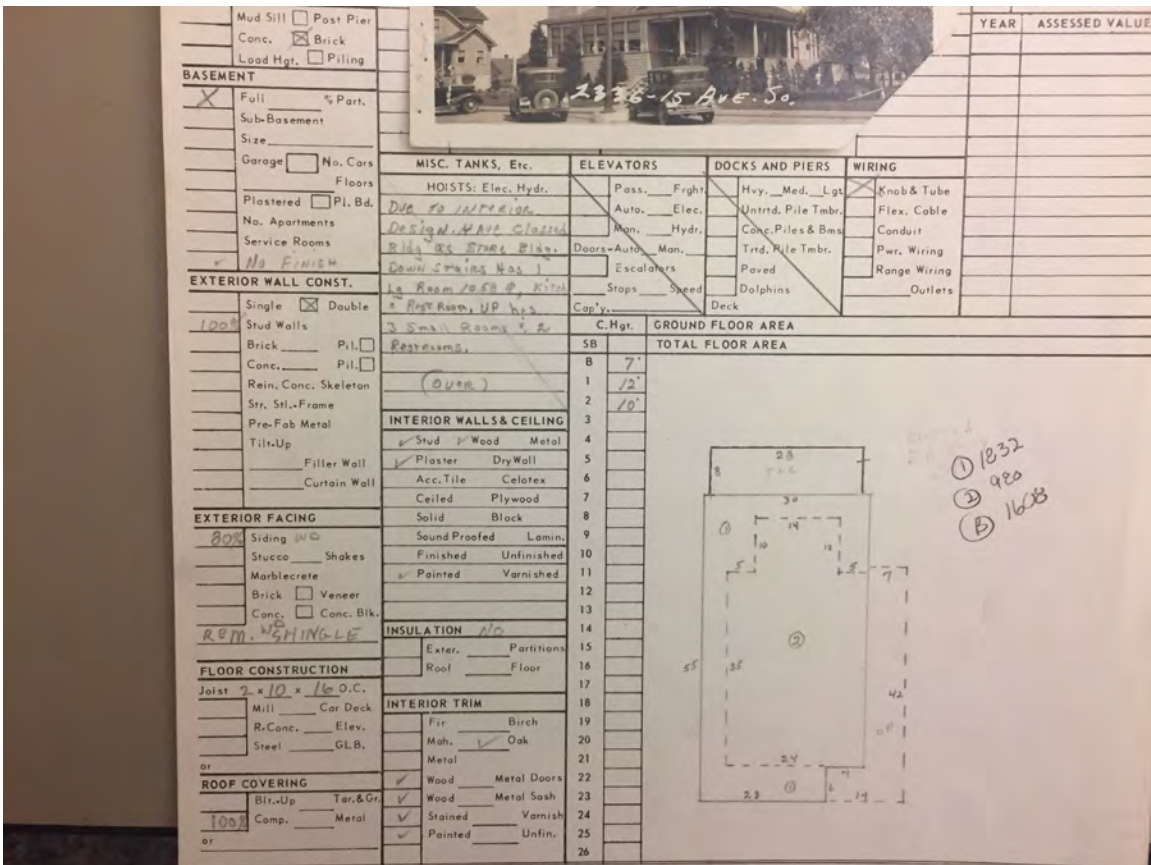 Mud Sill Post Pier
Conc. Brick
Load Hgt. Piling
BASEMENT
X Full % Part.
Sub-Basement
Size
Garage No. Cars
Floors
Plastered Pl. Bd.
No. Apartments
Service Rooms
✓ No Finish
EXTERIOR WALL CONST.
Single Double
100% Stud Walls
Brick Pil.
Conc. Pil.
Rein. Conc. Skeleton
Str. Stl.-Frame
Pre-Fab Metal
Tilt-Up
Filler Wall
Curtain Wall
EXTERIOR FACING
80% Siding WD
Stucco Shakes
Marblecrete
Brick Veneer
Conc. Conc. Blk.
Rem. WD SHINGLE
FLOOR CONSTRUCTION
Joist 2 x 10 x 16 O.C.
Mill Car Deck
R.Conc. Elev.
Steel GLB.
or
ROOF COVERING
Blt.-Up Tar.& Gr.
100% Comp. Metal
or
2336-15 AVE. So.
MISC. TANKS, Etc.
HOISTS: Elec. Hydr.
Due to interior
Design. Have Classed
Bldg as Store Bldg.
Down Stairs Has 1
Lg Room 1058 , Kitch
Rest Room, UP has
3 Small Rooms & 2
Restrooms.
(OVER)
INTERIOR WALLS & CEILING
✓ Stud ✓ Wood Metal
✓ Plaster Dry Wall
Acc. Tile Celotex
Ceiled Plywood
Solid Block
Sound Proofed Lamin.
Finished Unfinished
✓ Painted Varnished
INSULATION NO
Exter. Partitions
Roof Floor
INTERIOR TRIM
Fir Birch
Mah. ✓ Oak
Metal
✓ Wood Metal Doors
✓ Wood Metal Sash
✓ Stained Varnish
✓ Painted Unfin.
ELEVATORS
Pass. Frght.
Auto. Elec.
Man. Hydr.
Doors-Auto Man.
Escalators
Stops Speed
Cap'y.
DOCKS AND PIERS
Hvy. Med. Lgt.
Untrtd. Pile Tmbr.
Conc. Piles & Bms
Trtd. Pile Tmbr.
Paved
Dolphins
Deck
WIRING
X Knob & Tube
Flex. Cable
Conduit
Pwr. Wiring
Range Wiring
Outlets
YEAR ASSESSED VALUE
C. Hgt. GROUND FLOOR AREA
SB TOTAL FLOOR AREA
B 7'
1 12'
2 10'
3
4
5
6
7
8
9
10
11
12
13
14
15
16
17
18
19
20
21
22
23
24
25
26
28
8
30
① 14
10 12
5 5 7
②
55 35
42
24
7
23 ① 6 14
① 1832
② 980
Ⓑ 1608